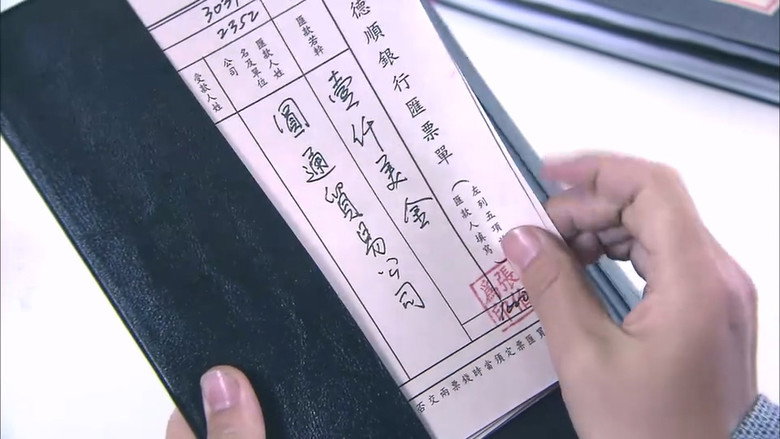 德順銀行匯票單
（左列五項
匯款人填寫
匯款若幹
壹仟美金
匯款人姓
名及單位
公司
圓通貿易公司
受款人姓
2352
買匯票定須當時錢票兩交否